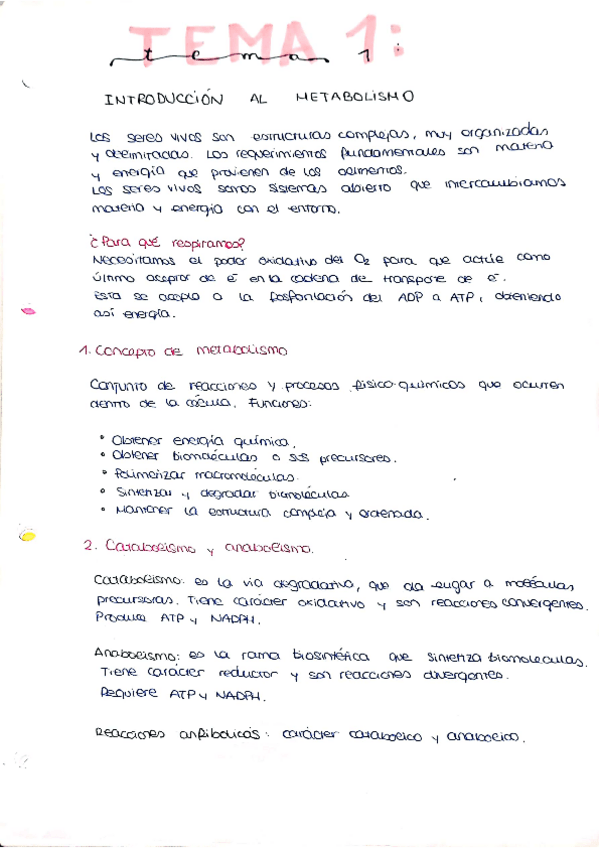 TEMA 1:
tema 1
INTRODUCCIÓN AL METABOLISMO
Los seres vivos son estructuras complejas, muy organizadas
y delimitadas. Los requerimientos fundamentales son materia
y energía que provienen de los alimentos.
Los seres vivos somos sistemas abierto que intercambiamos
materia y energía con el entorno.
¿Para qué respiramos?
Necesitamos el poder oxidativo del O2 para que actúe como
último aceptor de e⁻ en la cadena de transporte de e⁻.
Esta se acopla a la fosforilación del ADP a ATP, obteniendo
así energía.
1. Concepto de metabolismo
Conjunto de reacciones y procesos físico-químicos que ocurren
dentro de la célula. Funciones:
• Obtener energía química.
• Obtener biomoléculas o sus precursores.
• Polimerizar macromoléculas.
• Sintetizar y degradar biomoléculas
• Mantener la estructura compleja y ordenada.
2. Catabolismo y anabolismo.
Catabolismo: es la vía degradativa, que da lugar a moléculas
precursoras. Tiene carácter oxidativo y son reacciones convergentes.
Produce ATP y NADPH.
Anabolismo: es la rama biosintética que sintetiza biomoleculas.
Tiene carácter reductor y son reacciones divergentes.
Requiere ATP y NADPH.
Reacciones anfibolicas: carácter catabolico y anabolico.